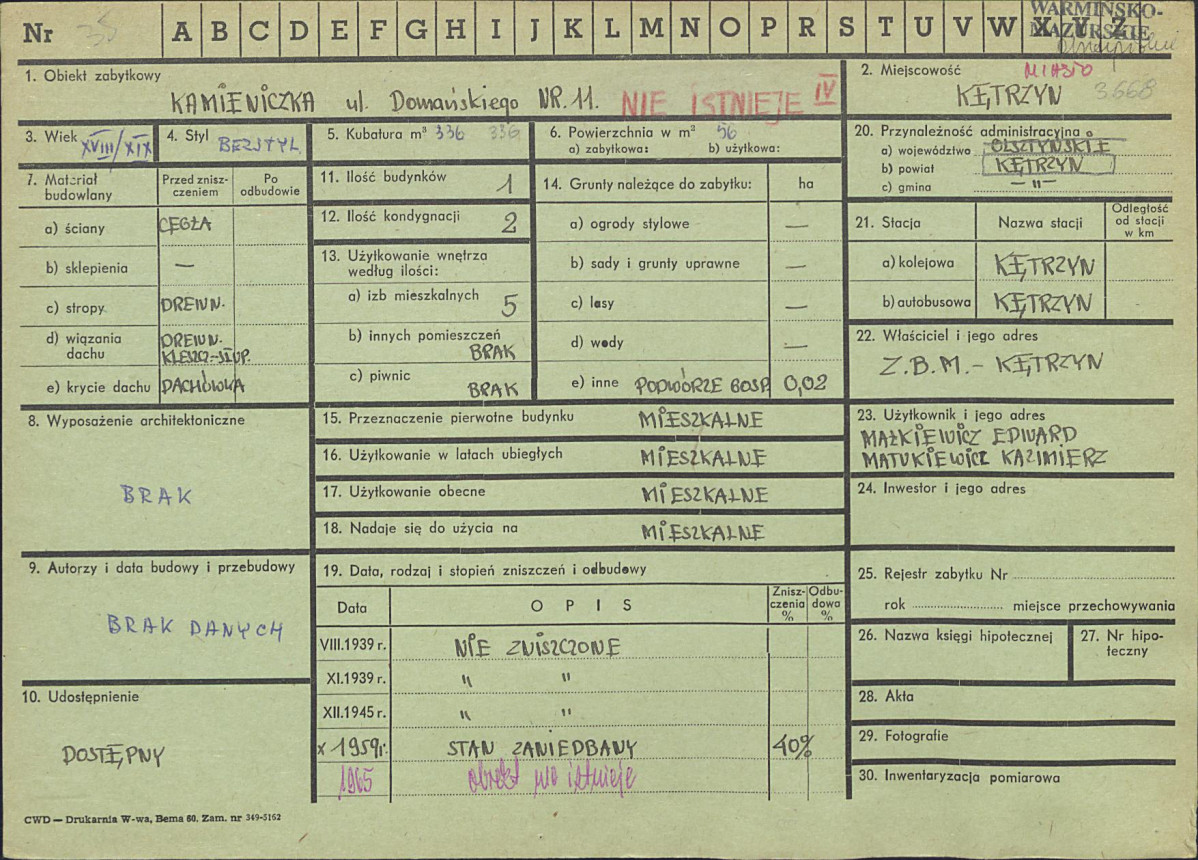 Nr 35 A B C D E F G H I J K L M N O P R S T U V W X Y Z
WARMIŃSKO-
MAZURSKIE
1. Obiekt zabytkowy
KAMIENICZKA ul. Domańskiego NR. 11. NIE ISTNIEJE IV
2. Miejscowość MIASTO
KĘTRZYN 3668
3. Wiek XVIII/XIX
4. Styl BEZSTYL
5. Kubatura m³ 336 336
6. Powierzchnia w m² 56
a) zabytkowa: b) użytkowa:
7. Materiał budowlany
Przed zniszczeniem
Po odbudowie
a) ściany CEGŁA
b) sklepienia —
c) stropy DREWN.
d) wiązania dachu DREWN. KLESZCZ.-STUP.
e) krycie dachu DACHÓWKA
8. Wyposażenie architektoniczne
BRAK
9. Autorzy i data budowy i przebudowy
BRAK DANYCH
10. Udostępnienie
DOSTĘPNY
11. Ilość budynków 1
12. Ilość kondygnacji 2
13. Użytkowanie wnętrza
według ilości:
a) izb mieszkalnych 5
b) innych pomieszczeń
BRAK
c) piwnic
BRAK
14. Grunty należące do zabytku: ha
a) ogrody stylowe —
b) sady i grunty uprawne —
c) lasy —
d) wody —
e) inne PODWÓRZE GOSP. 0,02
15. Przeznaczenie pierwotne budynku MIESZKALNE
16. Użytkowanie w latach ubiegłych MIESZKALNE
17. Użytkowanie obecne MIESZKALNE
18. Nadaje się do użycia na MIESZKALNE
19. Data, rodzaj i stopień zniszczeń i odbudowy
Data OPIS Zniszczenia % Odbudowa %
VIII.1939 r. NIE ZNISZCZONE
XI.1939 r. " "
XII.1945 r. " "
X 1959r. STAN ZANIEDBANY 40%
1965 obiekt nie istnieje
20. Przynależność administracyjna
a) województwo OLSZTYŃSKIE
b) powiat KĘTRZYN
c) gmina — " —
21. Stacja Nazwa stacji Odległość od stacji w km
a) kolejowa KĘTRZYN
b) autobusowa KĘTRZYN
22. Właściciel i jego adres
Z.B.M. - KĘTRZYN
23. Użytkownik i jego adres
MAŻKIEWICZ EDWARD
MATUKIEWICZ KAZIMIERZ
24. Inwestor i jego adres
25. Rejestr zabytku Nr
rok miejsce przechowywania
26. Nazwa księgi hipotecznej
27. Nr hipoteczny
28. Akta
29. Fotografie
30. Inwentaryzacja pomiarowa
CWD — Drukarnia W-wa, Bema 60. Zam. nr 349-5162